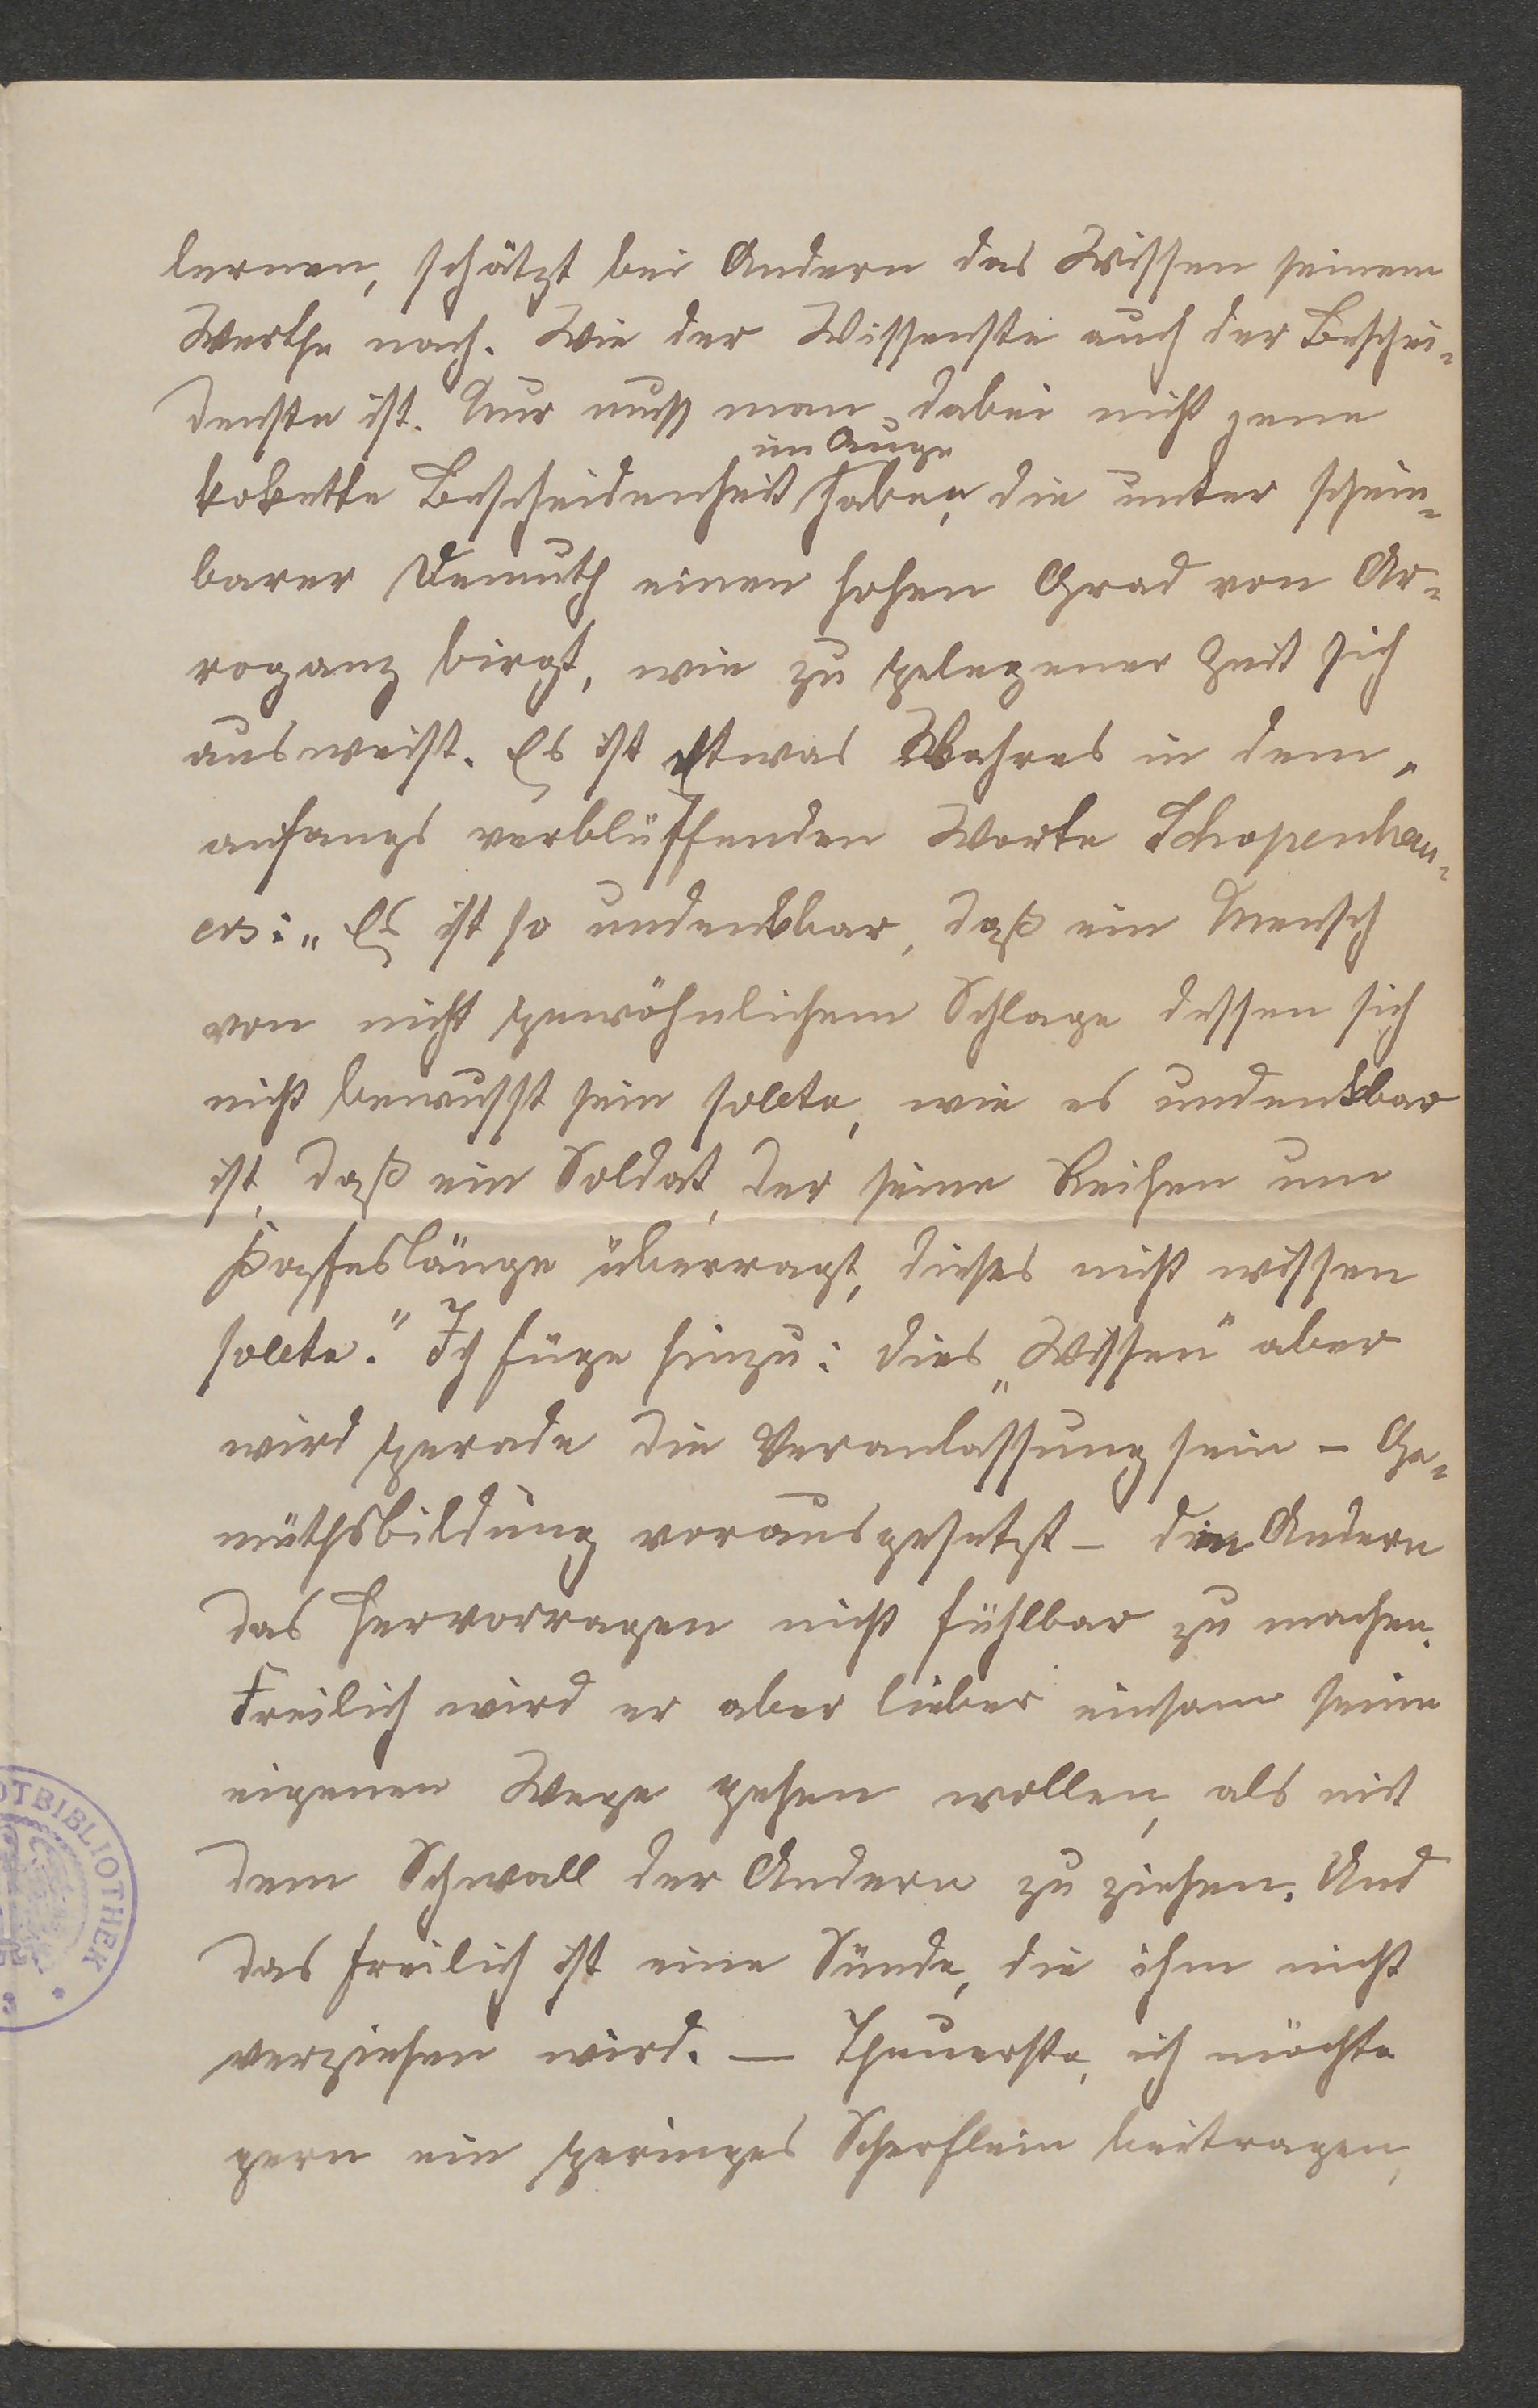 lernen, schätzt bei Andern das Wissen seinem
Werthe nach. Wie der Wissenste auch der Beschei-
denste ist. Nur muss man dabei nicht jene
im Auge
kokette Bescheidenheit haben, die unter schein-
barer Demuth einen hohen Grad von Ar-
roganz birgt, wie zu gelegener Zeit sich
ausweist. Es ist etwas Wahres in dem,
anfangs verblüffenden Worte Schopenhau-
ers: „Es ist so undenkbar, daß ein Mensch
von nicht gewöhnlichem Schlage dessen sich
nicht bewusst sein sollte, wie es undenkbar
ist, daß ein Soldat, der seine Reihen um
Kopfeslänge überragt, dieses nicht wissen
sollte." Ich füge hinzu: dies „Wissen" aber
wird gerade die Veranlassung sein – Ge-
müthsbildung vorausgesetzt – den Andern
das Hervorragen nicht fühlbar zu machen.
Freilich wird er aber lieber einsam seine
eigenen Wege gehen wollen, als mit
dem Schwall der Andern zu ziehen. Und
das freilich ist eine Sünde, die ihm nicht
verziehen wird. — Theuerste, ich möchte
gern ein geringes Scherflein beitragen,
DTBIBLIOTHEK